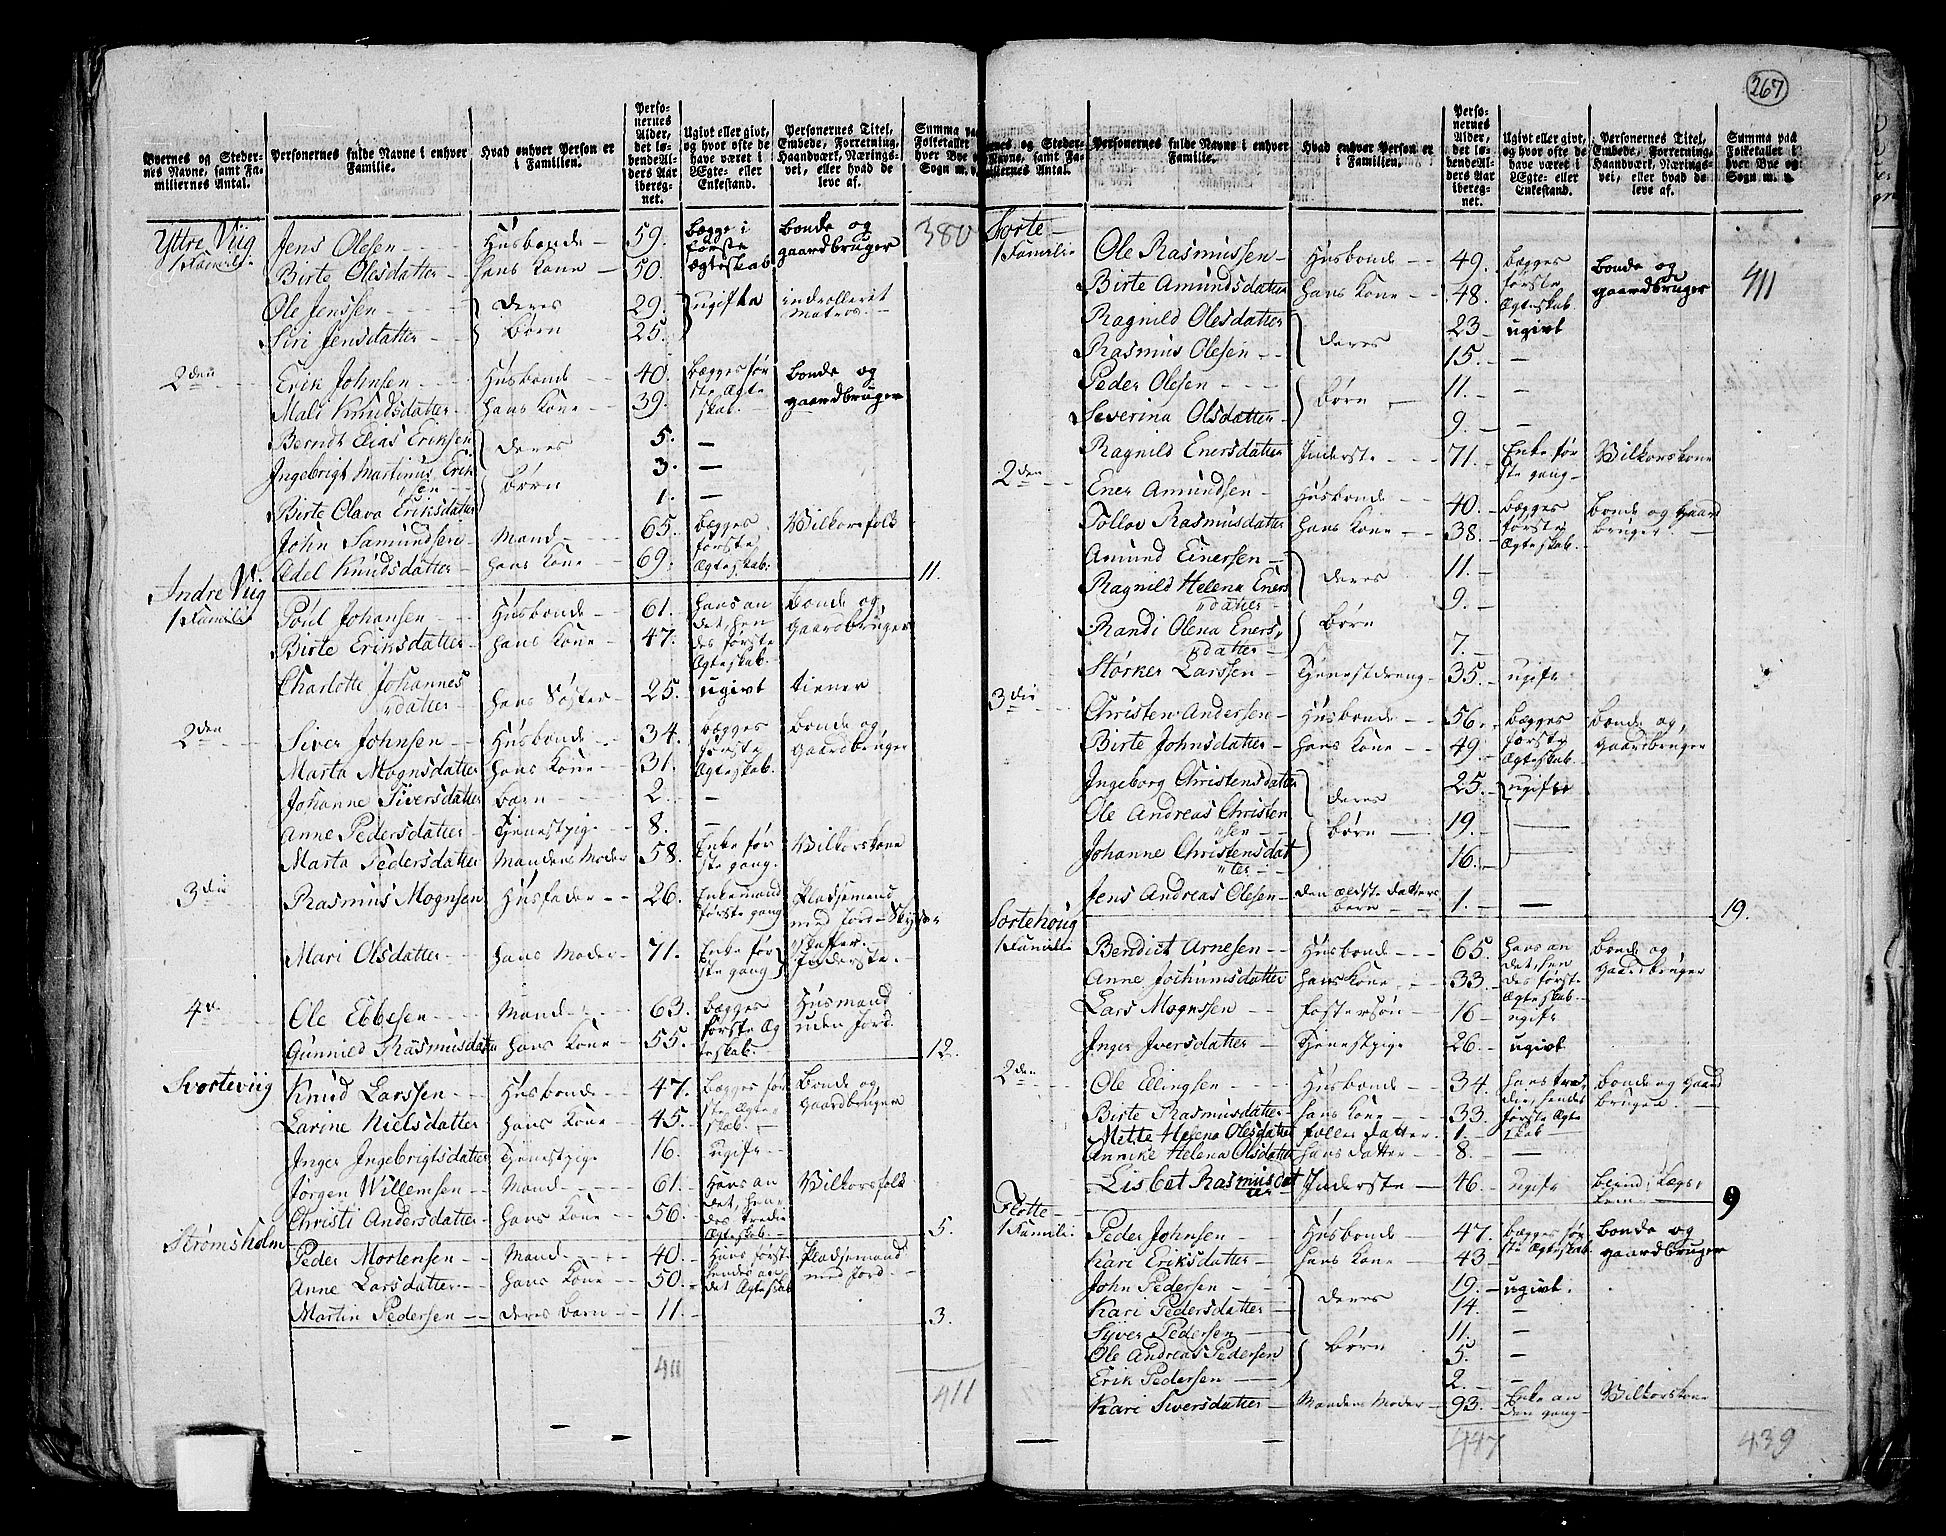 267
Byernes og Stedernes Navne, samt Familiernes Antal. | Personernes fulde Navne i enhver Familie. | Hvad enhver Person er i Familien. | Personernes Alder, det løbende Alders Aar iberegnet. | Ugivt eller givt, og hvor ofte de have været i Ægte- eller Enkestand. | Personernes Titel, Embede, Forretning, Haandværk, Næringsvei, eller hvad de leve af. | Summa paa Folketallet i hver Bye og Sogn m. v.
Yttre Viig 1 Famili | Jens Olesen | Husbonde | 59. | begge i første Ægteskab | bonde og gaardbruger | 380
Birte Olesdatter | hans Kone | 50.
Ole Jenssen | deres | 29. | ugifta | indrolleret Matros
Siri Jensdatter | Børn | 25.
2den | Erik Johnsen | Husbonde | 40. | begges første Ægteskab | bonde og gaardbruger
Mali Knudsdatter | hans Kone | 39.
Berndt Elias Eriksen | deres | 5. | —
Ingebrigt Martinus Eriksen | Børn | 3. | —
Birte Olava Eriksdatter | 1. | —
John Samundsen | Mand | 65. | begges første Ægteskab. | Vilkorsfolk
Adel Knudsdatter | hans Kone | 69. | 11.
Indre Viig 1 Famili | Poul Johansen | Husbonde | 61. | hans andet, hendes første Ægteskab | Bonde og Gaardbruger
Birte Eriksdatter | hans Kone | 47.
Charlotte Johannesdatter | hans Søster | 25. | ugivt | tiener
2den | Siver Johnsen | Husbonde | 34. | begges første Ægteskab. | bonde og gaardbruger
Marta Mognsdatter | hans Kone | 31.
Johanne Siversdatter | barn | 2. | —
Anne Pedersdatter | Tjenestpige | 8. | —
Marta Pedersdatter | Mandens Moder | 58. | Enke første gang. | Vilkorskone
3die | Rasmus Mognsen | Husfader | 26. | Enkemand første gang | Pladsemand med Jord Skydsskaffer.
Mari Olsdatter | hans Moder | 71. | Enke første gang | Inderste.
4de | Ole Ebbesen | Mand | 63. | begges første Ægteskab. | Husmand uden Jord.
Gunnild Rasmusdatter | hans Kone | 55. | 12.
Svorteviig | Knud Larssen | Husbonde | 47. | begges første Ægteskab. | Bonde og Gaardbruger
Larine Nielsdatter | hans Kone | 45.
Inger Ingebrigtsdatter | Tjenestpige | 16. | ugift
Jørgen Willemsen | Mand | 61. | Hans andet, hendes tredie Ægteskab | Vilkorsfolk
Christi Andersdatter | hans Kone | 56. | 5.
Strømsholm | Peder Mortensen | Mand | 40. | Hans første hendes andet Ægteskab | Pladsemand med Jord
Anne Larsdatter | hans Kone | 50.
Martin Pedersen | deres barn | 11. | 3.
411 | 411
Byernes og Stedernes Navne, samt Familiernes Antal. | Personernes fulde Navne i enhver Familie. | Hvad enhver Person er i Familien. | Personernes Alder, det løbende Alders Aar iberegnet. | Ugivt eller givt, og hvor ofte de have været i Ægte- eller Enkestand. | Personernes Titel, Embede, Forretning, Haandværk, Næringsvei, eller hvad de leve af. | Summa paa Folketallet i hver Bye og Sogn m. v.
Sorte 1 Famili | Ole Rasmussen | Husbonde | 49. | begges første Ægteskab | bonde og gaardbruger | 411
Birte Amundsdatter | hans Kone | 48.
Ragnild Olesdatter | deres | 23 | ugivt
Rasmus Olesen | 15. | —
Peder Olesen | Børn | 11. | —
Severina Olsdatter | 9. | —
Ragnild Enersdatter | Inderste | 71. | Enke første gang | Vilkorskone
2den | Ener Amundsen | Husbonde | 40. | begges første Ægteskab | bonde og Gaardbruger.
Tollov Rasmusdatter | hans Kone | 38.
Amund Einersen | deres | 11. | —
Ragnild Helena Enersdatter | Børn | 9. | —
Randi Olena Enersdatter | 7. | —
Størker Larssen | Tjenestdreng | 35. | ugift
3die | Christen Andersen | Husbonde | 56. | begges første Ægteskab | bonde og gaardbruger
Birte Johnsdatter | hans Kone | 49.
Ingeborg Christensdatter | deres | 25. | ugifte
Ole Andreas Christensen | Børn | 19. | —
Johanne Christensdatter | 16. | —
Jens Andreas Olesen | den ældste datters barn | 1. | — | 19.
Sortehoug 1 Famili | Bendict Arnesen | Husbonde | 65. | hans andet, hendes første Ægteskab | bonde og gaardbruger
Anne Jochumsdatter | hans Kone | 33.
Lars Mognssen | fostersøn | 16 | ugift
Inger Iversdatter | Tjenestpige | 26. | ugivt
2den | Ole Ellingsen | Husbonde | 34. | hans tredie, hendes første Ægteskab | bonde og Gaardbruger.
Birte Rasmusdatter | hans Kone | 33.
Mette Helena Olesdatter | fælles datter | 1. | —
Annike Helena Olsdatter | hans datter | 8. | —
Lisbet Rasmusdatter | Inderste | 46. | ugift | 9
Flotte 1 Famili | Peder Johnsen | Husbonde | 47. | begges første Ægteskab | bonde og gaardbruger
Kari Eriksdatter | hans Kone | 43
John Pedersen | deres | 19. | ugivt.
Kari Pedersdatter | 14. | —
Syver Pedersen | Børn | 11. | —
Ole Andreas Pedersen | 5. | —
Erik Pedersen | 2. | —
Kari Siversdatter | Mandens Moder | 93. | Enke anden gang | Vilkorskone
447 | 439